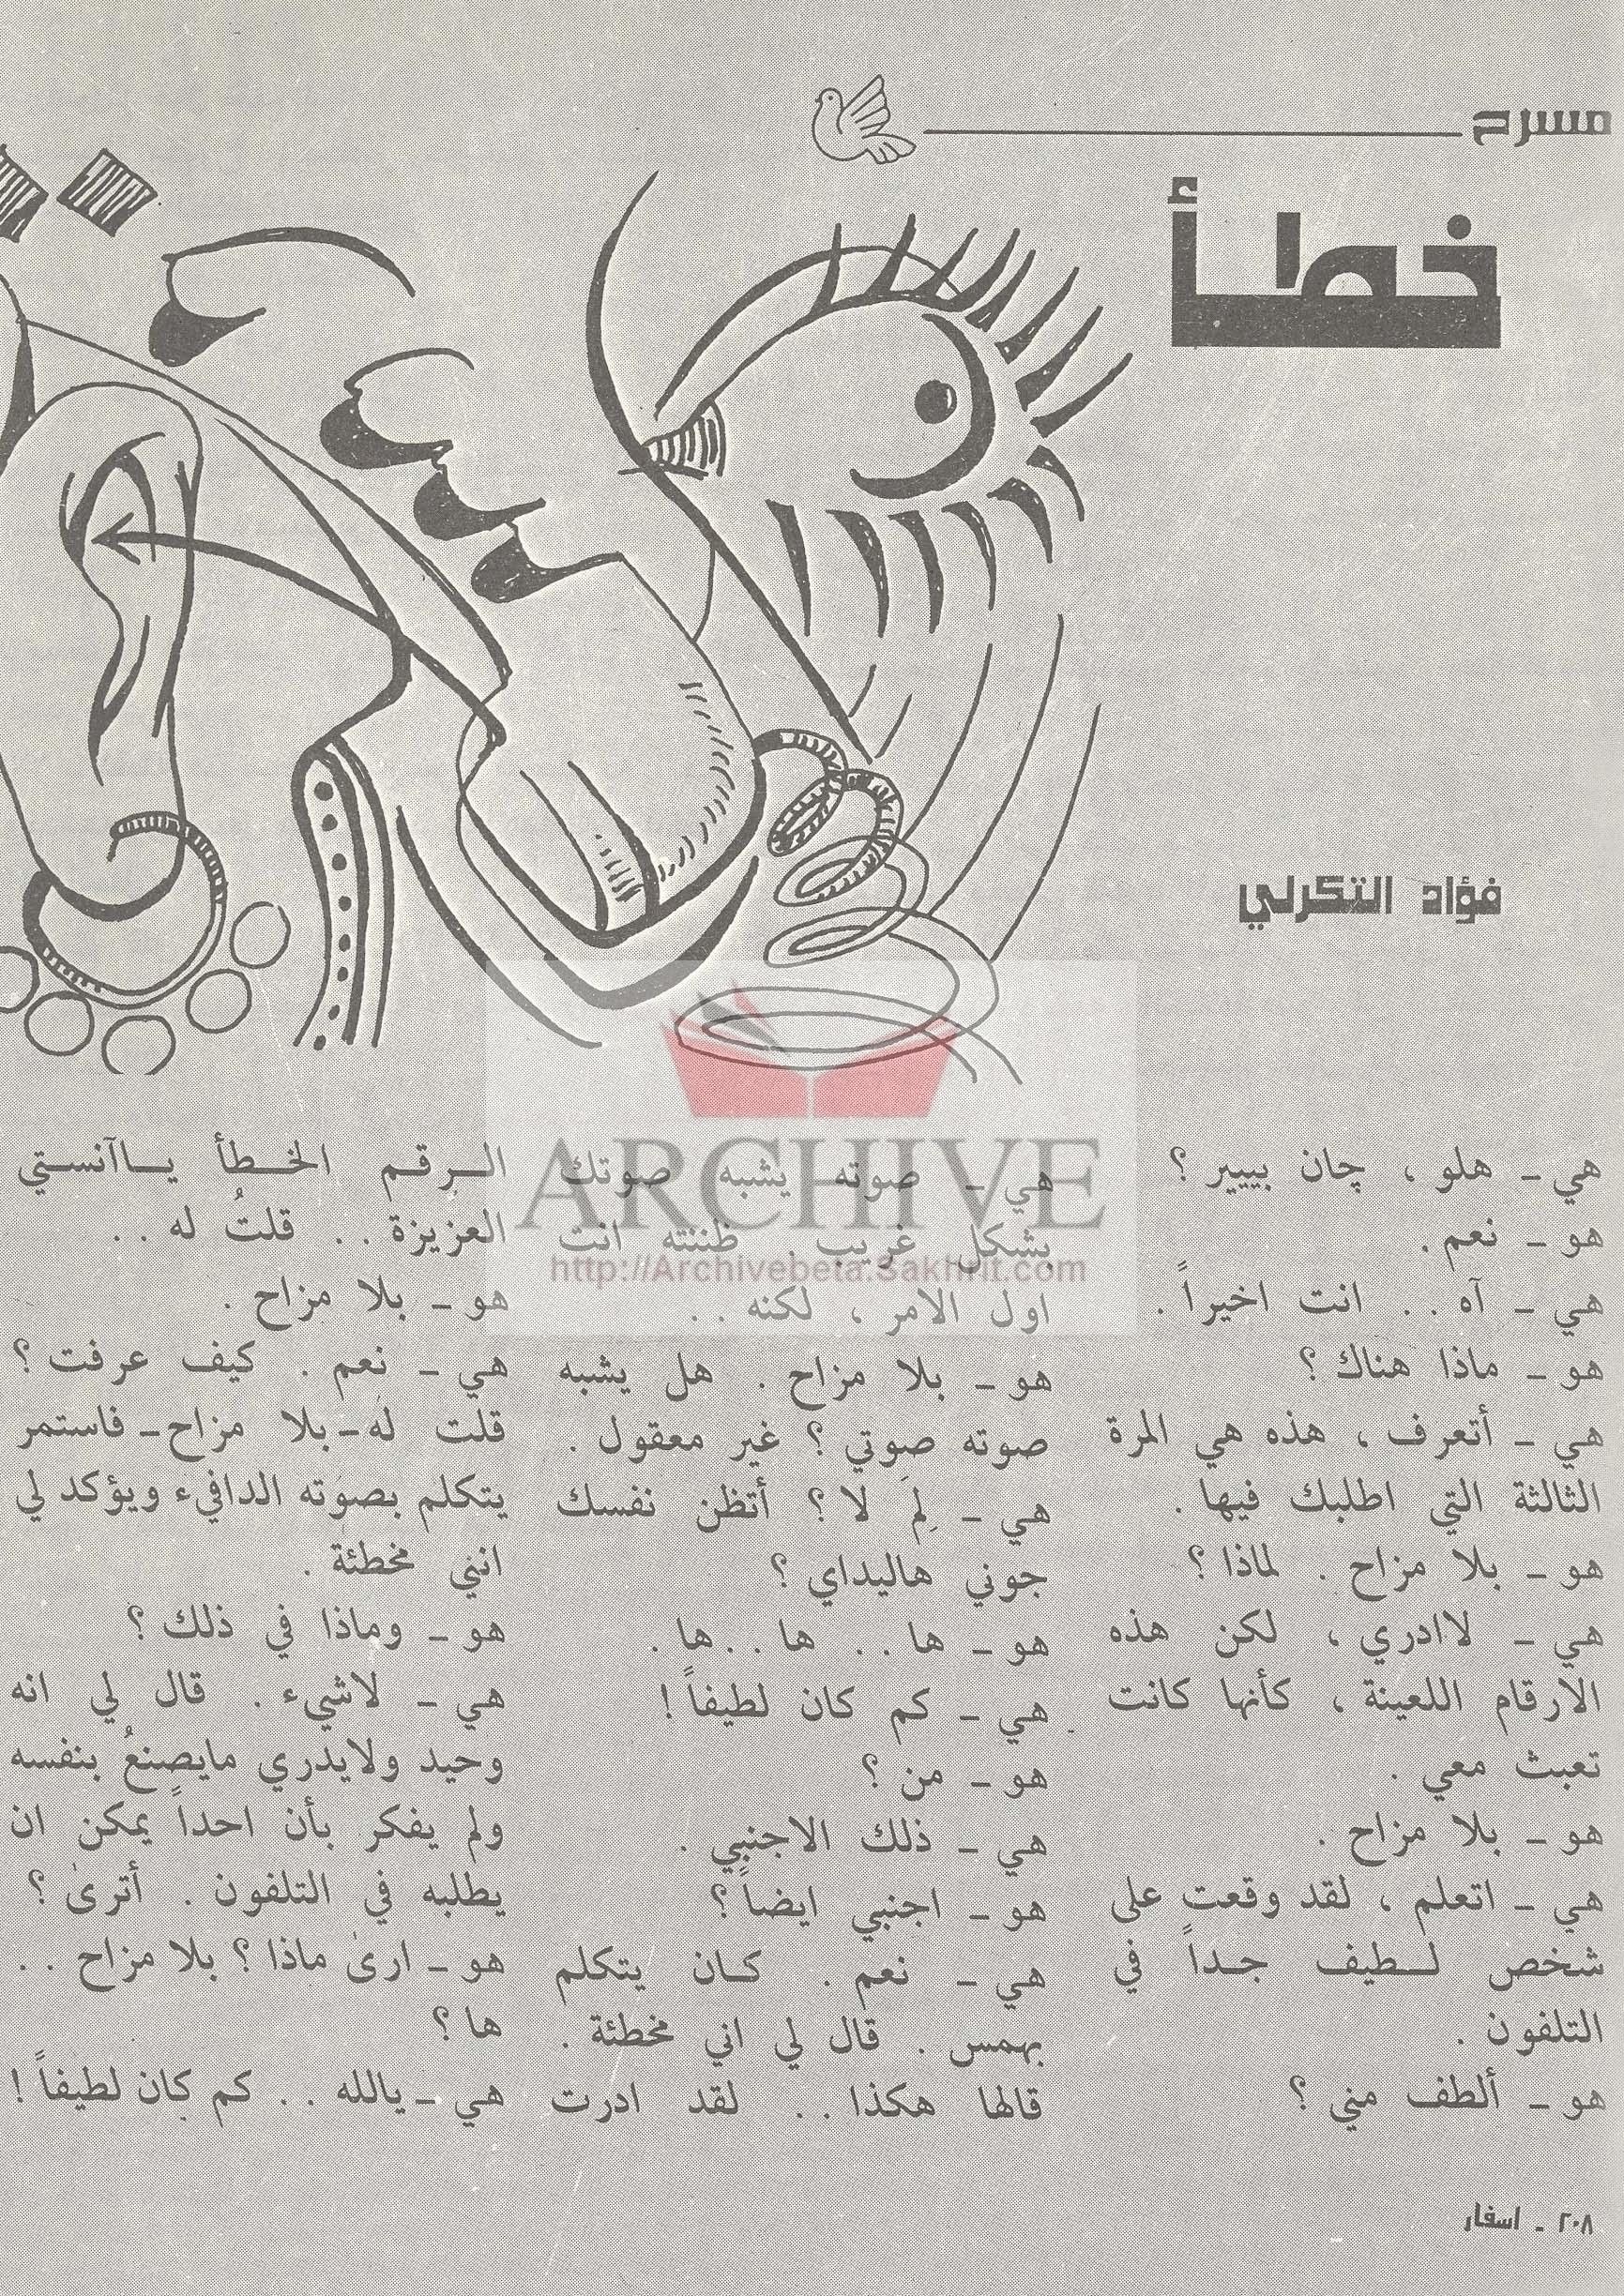 مسرح
خطأ
فؤاد التكرلي
هي ـ هلو ، چان بييير ؟
هو ـ نعم .
هي ـ آه . . انت اخيراً .
هو ـ ماذا هناك ؟
هي ـ أتعرف ، هذه هي المرة
الثالثة التي اطلبك فيها .
هو ـ بلا مزاح . لماذا ؟
هي ـ لاادري ، لكن هذه
الارقام اللعينة ، كأنها كانت
تعبث معي .
هو ـ بلا مزاح .
هي ـ اتعلم ، لقد وقعت على
شخص لـطيف جـداً في
التلفون .
هو ـ ألطف مني ؟
هي ـ صوته يشبه صوتك
بشكل غريب . ظننته انت
اول الامر ، لكنه . .
هو ـ بلا مزاح . هل يشبه
صوته صوتي ؟ غير معقول .
هي ـ لِمَ لا ؟ أتظن نفسك
جوني هاليداي ؟
هو ـ ها . . ها . . ها .
هي ـ كم كان لطيفاً !
هو ـ من ؟
هي ـ ذلك الاجنبي .
هو ـ اجنبي ايضاً ؟
هي ـ نعم . كـان يتكلم
بهمس . قال لي اني مخطئة .
قالها هكذا . . لقد ادرت
الـرقـم الخـطأ يـاآنسـتي
العزيزة . . قلتُ له . .
هو ـ بلا مزاح .
هي ـ نعم . كيف عرفت ؟
قلت له ـ بلا مزاح ـ فاستمر
يتكلم بصوته الدافيء ويؤكد لي
انني مخطئة .
هو ـ وماذا في ذلك ؟
هي ـ لاشيء . قال لي انه
وحيد ولايدري مايصنعُ بنفسه
ولم يفكر بأن احداً يمكن ان
يطلبه في التلفون . أترىٰ ؟
هو ـ ارىٰ ماذا ؟ بلا مزاح . .
ها ؟
هي ـ يالله . . كم كان لطيفاً !
٢٠٨ ـ اسفار
ARCHIVE
http://Archivebeta.Sakhrit.com